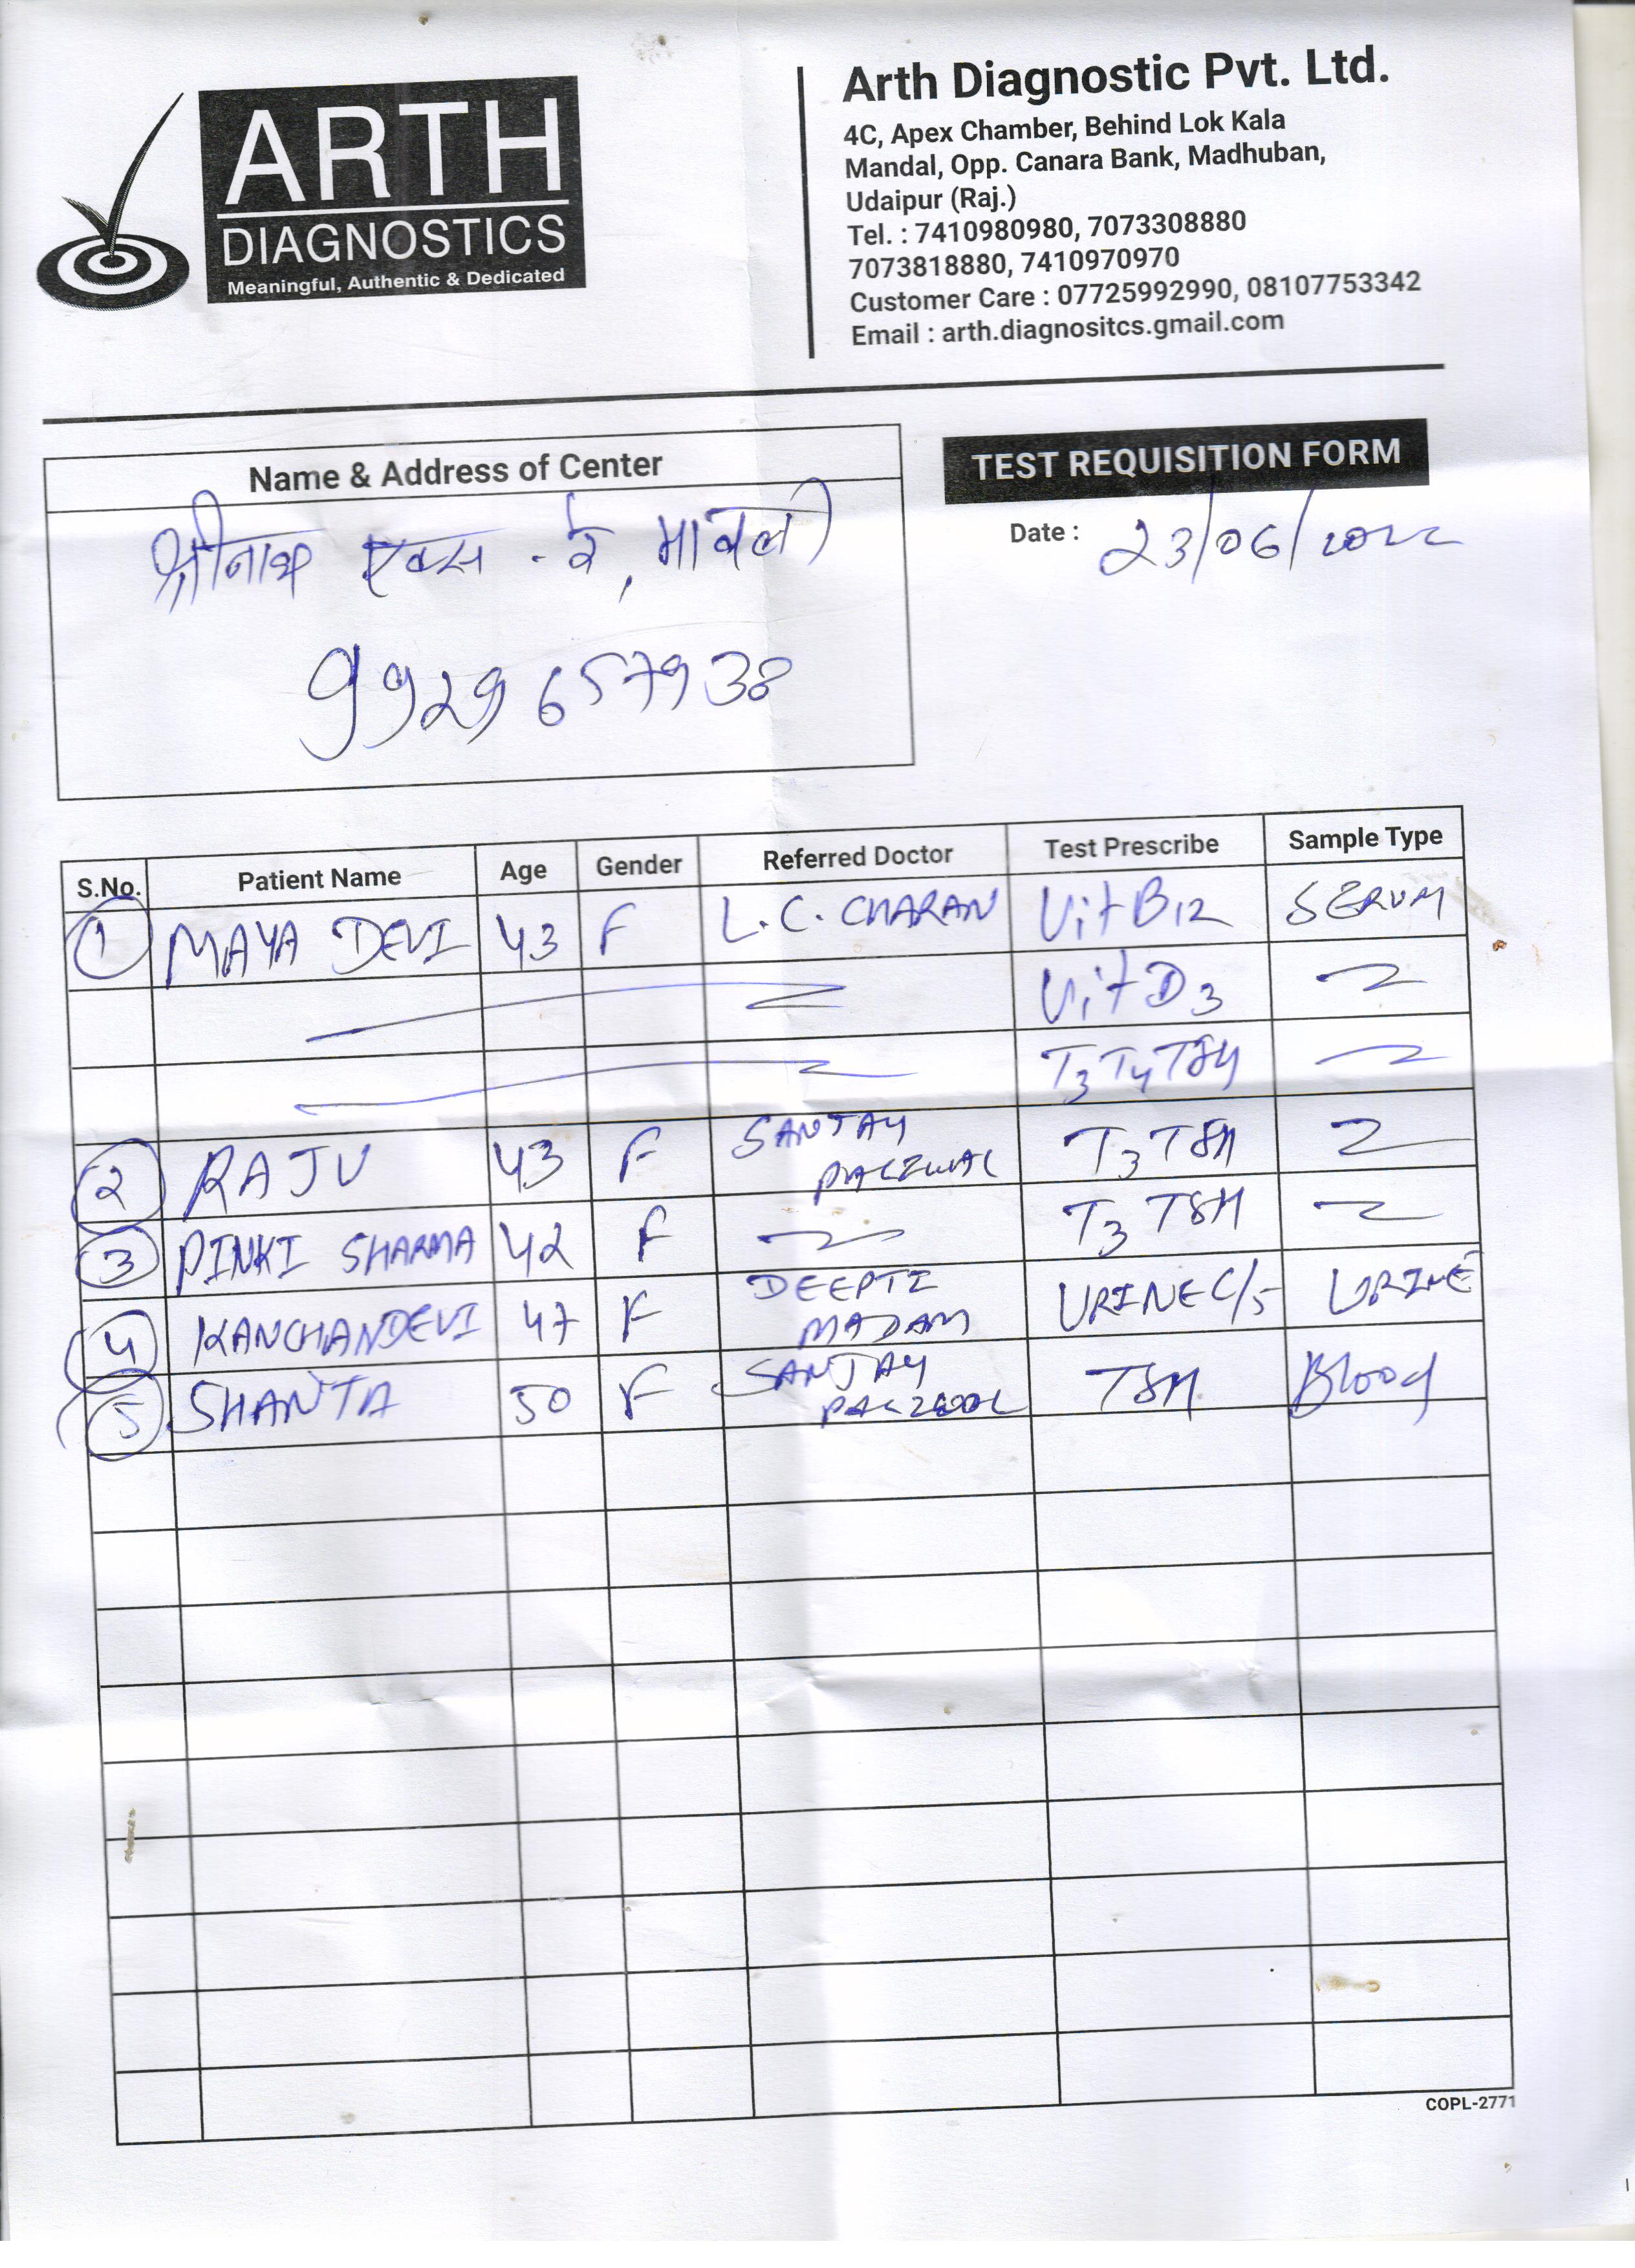 ARTH
DIAGNOSTICS
Meaningful, Authentic & Dedicated
Arth Diagnostic Pvt. Ltd.
4C, Apex Chamber, Behind Lok Kala
Mandal, Opp. Canara Bank, Madhuban,
Udaipur (Raj.)
Tel. : 7410980980, 7073308880
7073818880, 7410970970
Customer Care : 07725992990, 08107753342
Email : arth.diagnositcs.gmail.com
Name & Address of Center
श्रीनाथ एक्स - रे, मावली
9929657938
TEST REQUISITION FORM
Date : 23/06/2022
S.No. Patient Name Age Gender Referred Doctor Test Prescribe Sample Type
1 MAYA DEVI 43 F L.C. CHARAN Vit B12 SERUM
Vit D3
T3 T4 TSH
2 RAJU 43 F SANJAY T3 TSH
3 PINKI SHARMA 42 F T3 TSH
4 KANCHANDEVI 47 F DEEPTI MADAM URINE C/S URINE
5 SHANTA 50 F SANJAY TSH Blood
COPL-2771